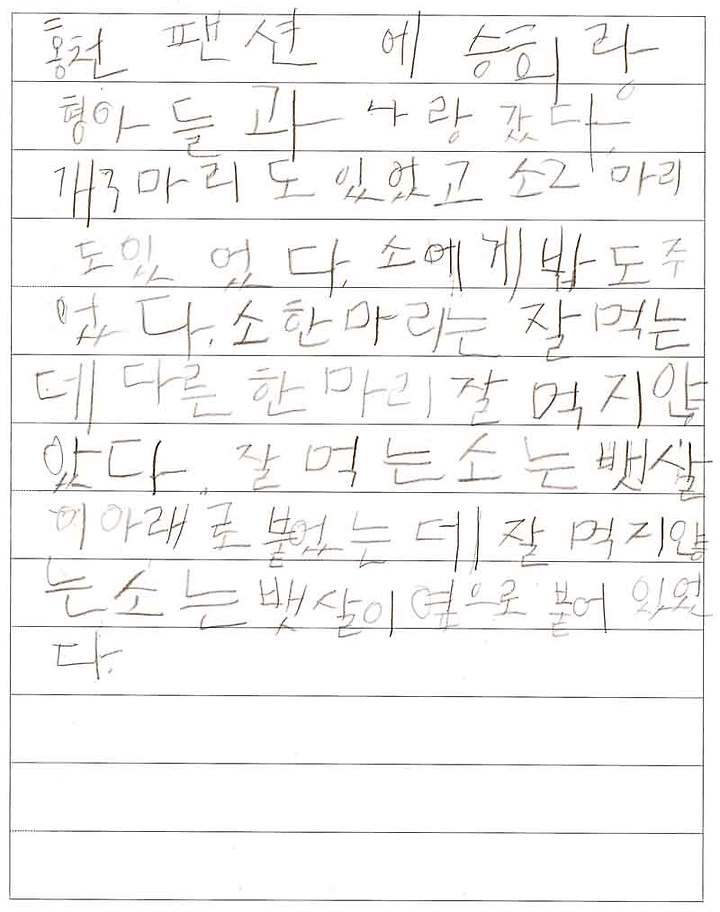 홍천 팬션 에 승희랑
형아 들 과 나랑 갔다.
개9마리도 있었고 소2 마리
도있 었다. 소에게 밥도주
었다. 소한마리는 잘 먹는
데 다른 한마리 잘 먹지안
았다. 잘 먹는소는 뱃살
이아래로 붙었는데 잘 먹지않
는소는 뱃살이 옆으로 붙어 있었
다.